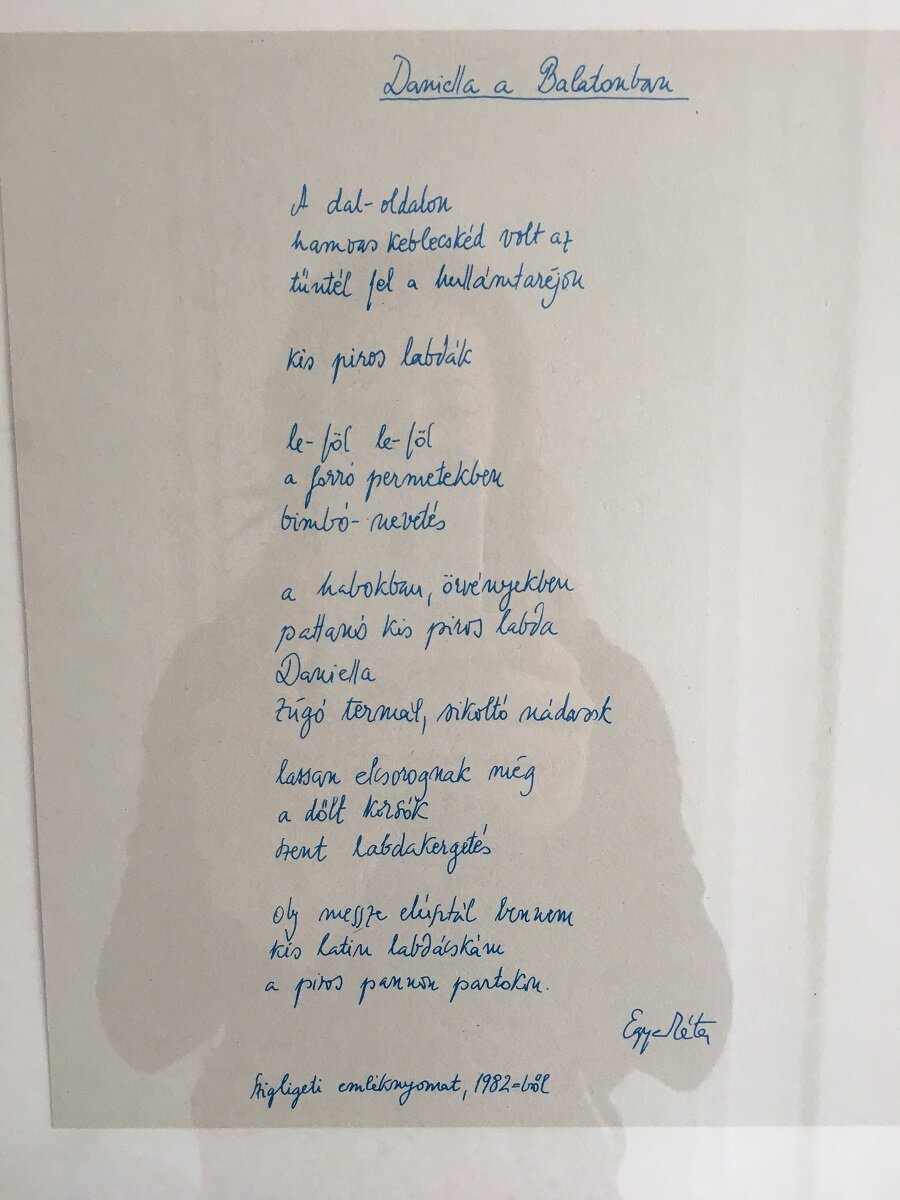 Daniella a Balatonban
A dal-oldalon
hamvas keblecskéd volt az
tűntél fel a hullámtaréjon
kis piros labdák
le-föl le-föl
a forró permetekben
bimbó-nevetés
a habokban, örvényekben
pattanó kis piros labda
Daniella
zúgó termál, sikoltó nádasok
lassan elcsorognak még
a dőlt korsók
szent labdakergetés
oly messze elúsztál bennem
kis latin labdácskám
a piros pannon partokon.
Szigligeti emléknyomat, 1982-ből